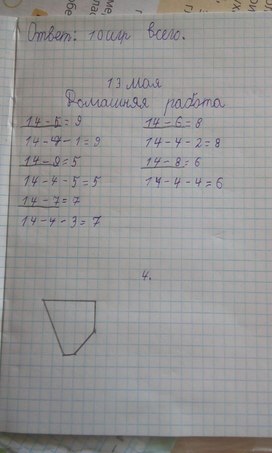 Ответ: 10 шар всего.
13 мая
Домашняя работа
14 - 5 = 9
14 - 4 - 1 = 9
14 - 9 = 5
14 - 4 - 5 = 5
14 - 7 = 7
14 - 4 - 3 = 7
14 - 6 = 8
14 - 4 - 2 = 8
14 - 8 = 6
14 - 4 - 4 = 6
4.